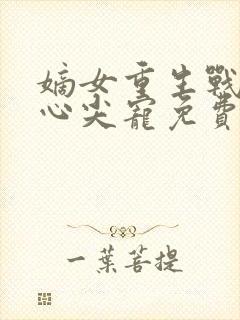 嫡女重生戰
心尖寵免費
一葉菩提